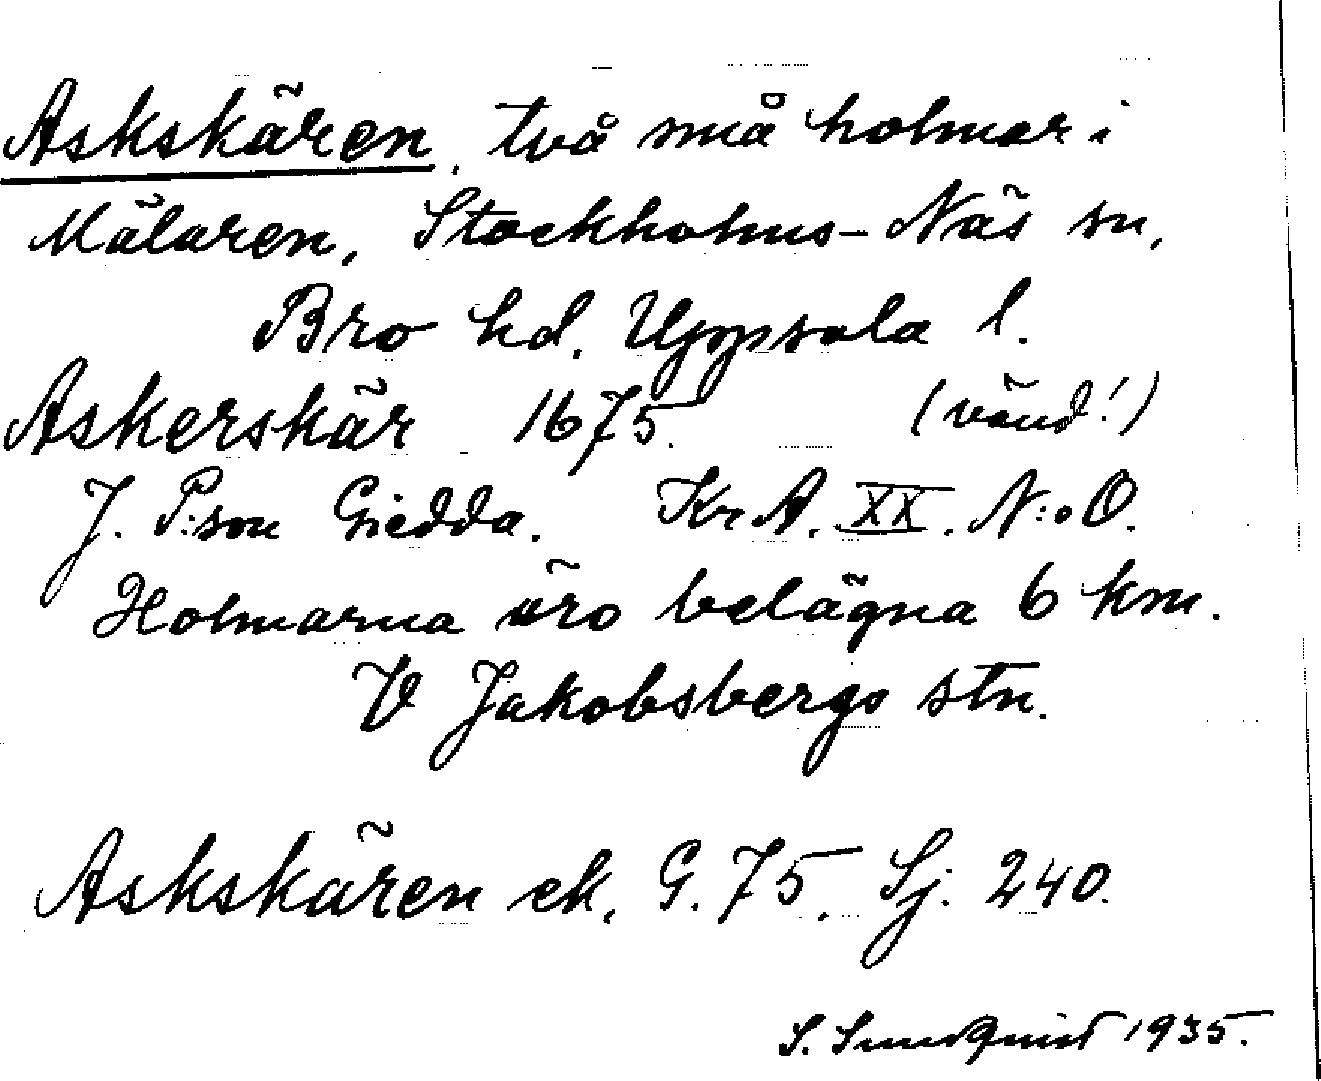 Askskären, två små holmar i
Mälaren, Stockholms-Näs sn,
Bro hd. Uppsala l.
Askerskär 1675. (vänd!)
J. P:son Giedda. Kr A. XX. N:o O.
Holmarna äro belägna 6 km.
V Jakobsbergs stn.
Askskären ek. G. 75. Sj. 240.
S. Sundquist 1935.